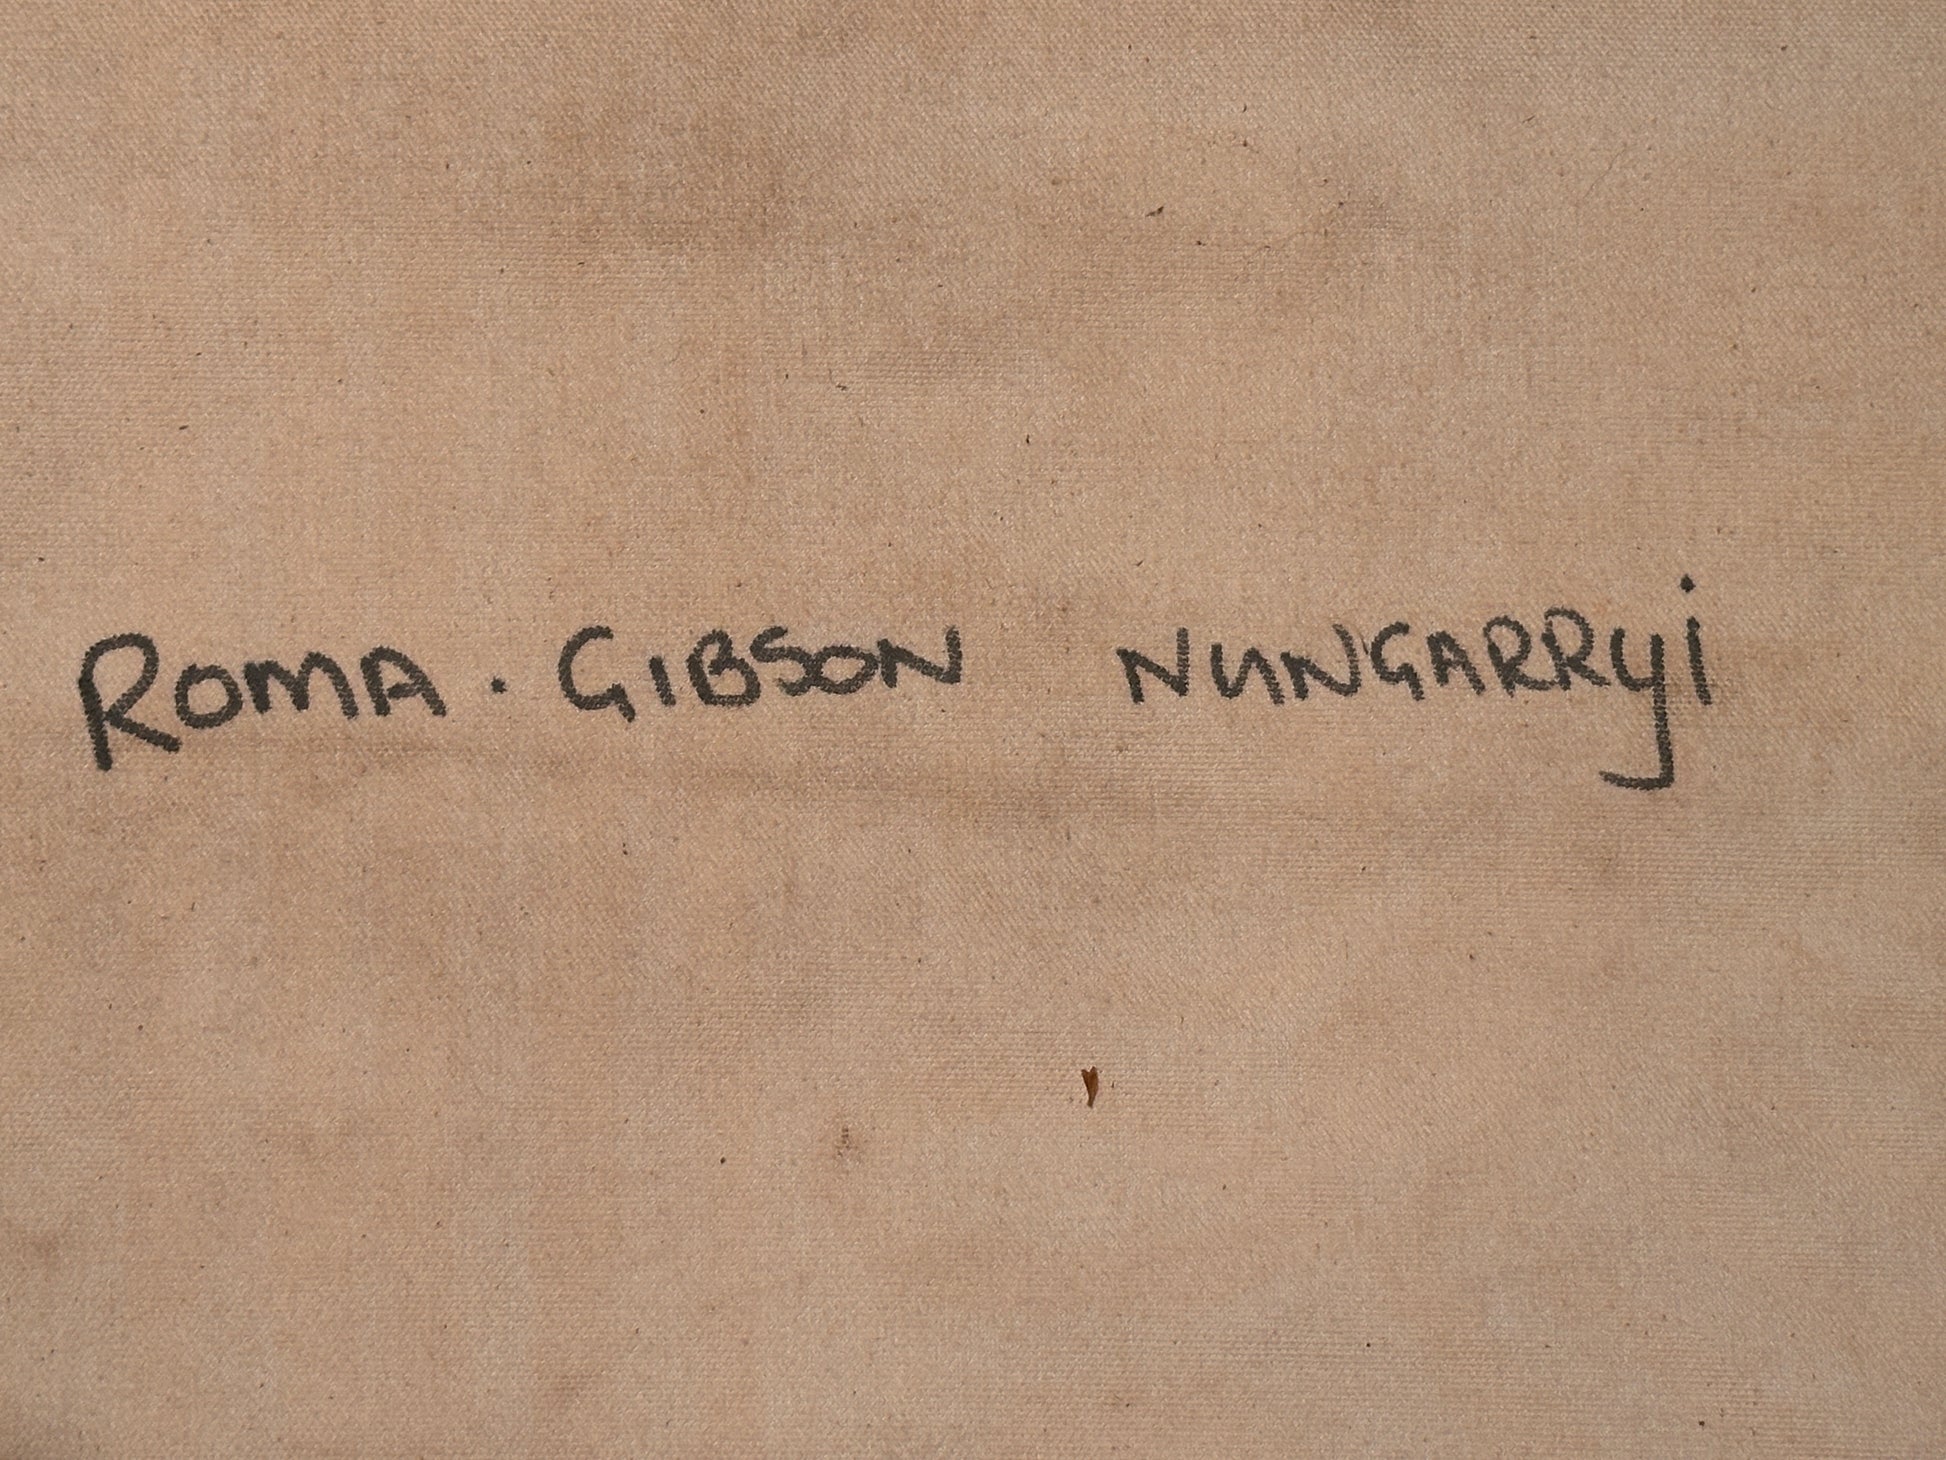 ROMA . GIBSON NUNGARRyi